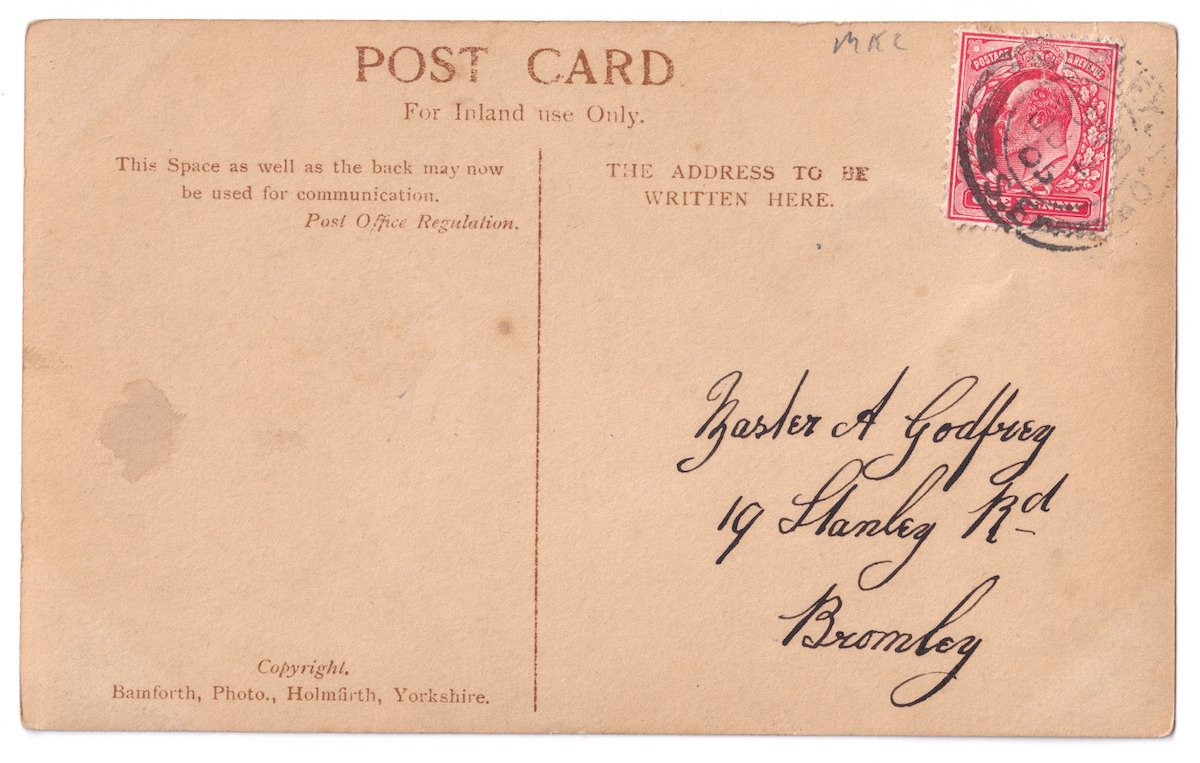 POST CARD
For Inland use Only.
This Space as well as the back may now
be used for communication.
Post Office Regulation.
THE ADDRESS TO BE
WRITTEN HERE.
POSTAGE & REVENUE
Master A Godfrey
19 Stanley Rd
Bromley
Copyright.
Bamforth, Photo., Holmfirth, Yorkshire.